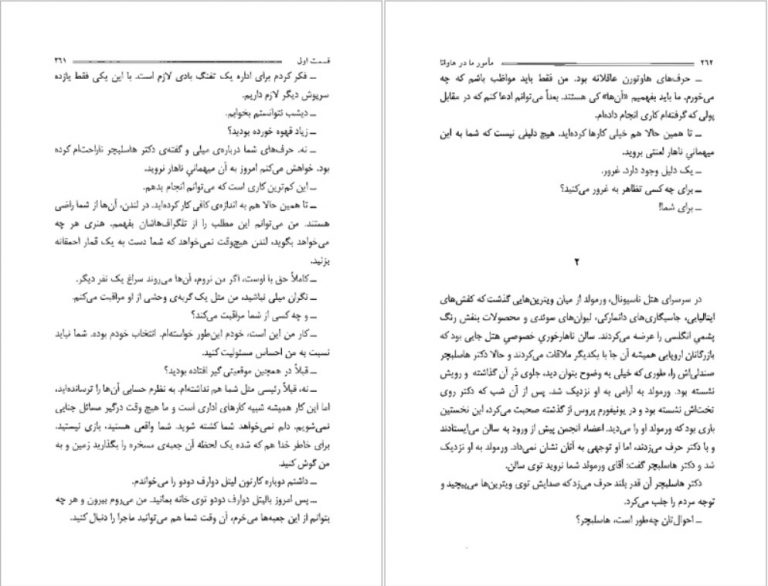 قسمت اول ۳۶۱
ــ فکر کردم برای اداره یک تفنگ بادی لازم است. با این یکی فقط یازده
سرپوش دیگر لازم داریم.
ــ دیشب نتوانستم بخوابم.
ــ زیاد قهوه خورده بودید؟
ــ نه. حرف‌های شما درباره‌ی میلی و گفته‌ی دکتر هاسلبچر ناراحت‌ام کرده
بود. خواهش می‌کنم امروز به آن میهمانی ناهار نروید.
ــ این کم‌ترین کاری است که می‌توانم انجام بدهم.
ــ تا همین حالا هم به اندازه‌ی کافی کار کرده‌اید. در لندن، آن‌ها از شما راضی
هستند. من می‌توانم این مطلب را از تلگراف‌هاشان بفهمم. هنری هر چه
می‌خواهد بگوید، لندن هیچ‌وقت نمی‌خواهد که شما دست به یک قمار احمقانه
بزنید.
ــ کاملاً حق با اوست، اگر من نروم، آن‌ها می‌روند سراغ یک نفر دیگر.
ــ نگران میلی نباشید، من مثل یک گربه‌ی وحشی از او مراقبت می‌کنم.
ــ و چه کسی از شما مراقبت می‌کند؟
ــ کار من این است، خودم این‌طور خواسته‌ام. انتخاب خودم بوده. شما نباید
نسبت به من احساس مسئولیت کنید.
ــ قبلاً در همچین موقعیتی گیر افتاده بودید؟
ــ نه، قبلاً رئیسی مثل شما هم نداشته‌ام. به نظرم حسابی آن‌ها را ترسانده‌اید،
اما این کار همیشه شبیه کارهای اداری است و ما هیچ وقت درگیر مسائل جنایی
نمی‌شویم. دلم نمی‌خواهد شما کشته شوید. شما واقعی هستید، بازی نیستید.
برای خاطر خدا هم که شده یک لحظه آن جعبه‌ی مسخره را بگذارید زمین و به
من گوش کنید.
ــ داشتم دوباره کارتون لیتل دوارف دودو را می‌خواندم.
ــ پس امروز بالیتل دوارف دودو توی خانه بمانید. من می‌روم بیرون و هر چه
بتوانم از این جعبه‌ها می‌خرم، آن وقت شما هم می‌توانید ماجرا را دنبال کنید.
۲۶۲ مأمور ما در هاوانا
ــ حرف‌های هاوتورن عاقلانه بود. من فقط باید مواظب باشم که چه
می‌خورم. ما باید بفهمیم «آن‌ها» کی هستند. بعداً می‌توانم ادعا کنم که در مقابل
پولی که گرفته‌ام کاری انجام داده‌ام.
ــ تا همین حالا هم خیلی کارها کرده‌اید. هیچ دلیلی نیست که شما به این
میهمانی ناهار لعنتی بروید.
ــ یک دلیل وجود دارد. غرور.
ــ برای چه کسی تظاهر به غرور می‌کنید؟
ــ برای شما!
۲
در سرسرای هتل ناسیونال، ورمولد از میان ویترین‌هایی گذشت که کفش‌های
ایتالیایی، جاسیگاری‌های دانمارکی، لیوان‌های سوئدی و محصولات بنفش رنگ
پشمی انگلسی را عرضه می‌کردند. سالن ناهارخوریِ خصوصیِ هتل جایی بود که
بازرگانان اروپایی همیشه آن جا با یکدیگر ملاقات می‌کردند و حالا دکتر هاسلبچر
صندلی‌اش را، طوری که خیلی به وضوح بتوان دید، جلوی دَرِ آن گذاشته و رویش
نشسته بود. ورمولد به آرامی به او نزدیک شد. پس از آن شب که دکتر روی
تخت‌اش نشسته بود و در یونیفورم پروس از گذشته صحبت می‌کرد، این نخستین
باری بود که ورمولد او را می‌دید. اعضاء انجمن پیش از ورود به سالن می‌ایستادند
و با دکتر حرف می‌زدند، اما او توجهی به آنان نشان نمی‌داد. ورمولد به او نزدیک
شد و دکتر هاسلبچر گفت: آقای ورمولد شما نروید توی سالن.
دکتر هاسلبچر آن قدر بلند حرف می‌زد که صدایش توی ویترین‌ها می‌پیچید و
توجه مردم را جلب می‌کرد.
ــ احوال‌تان چه‌طور است، هاسلبچر؟